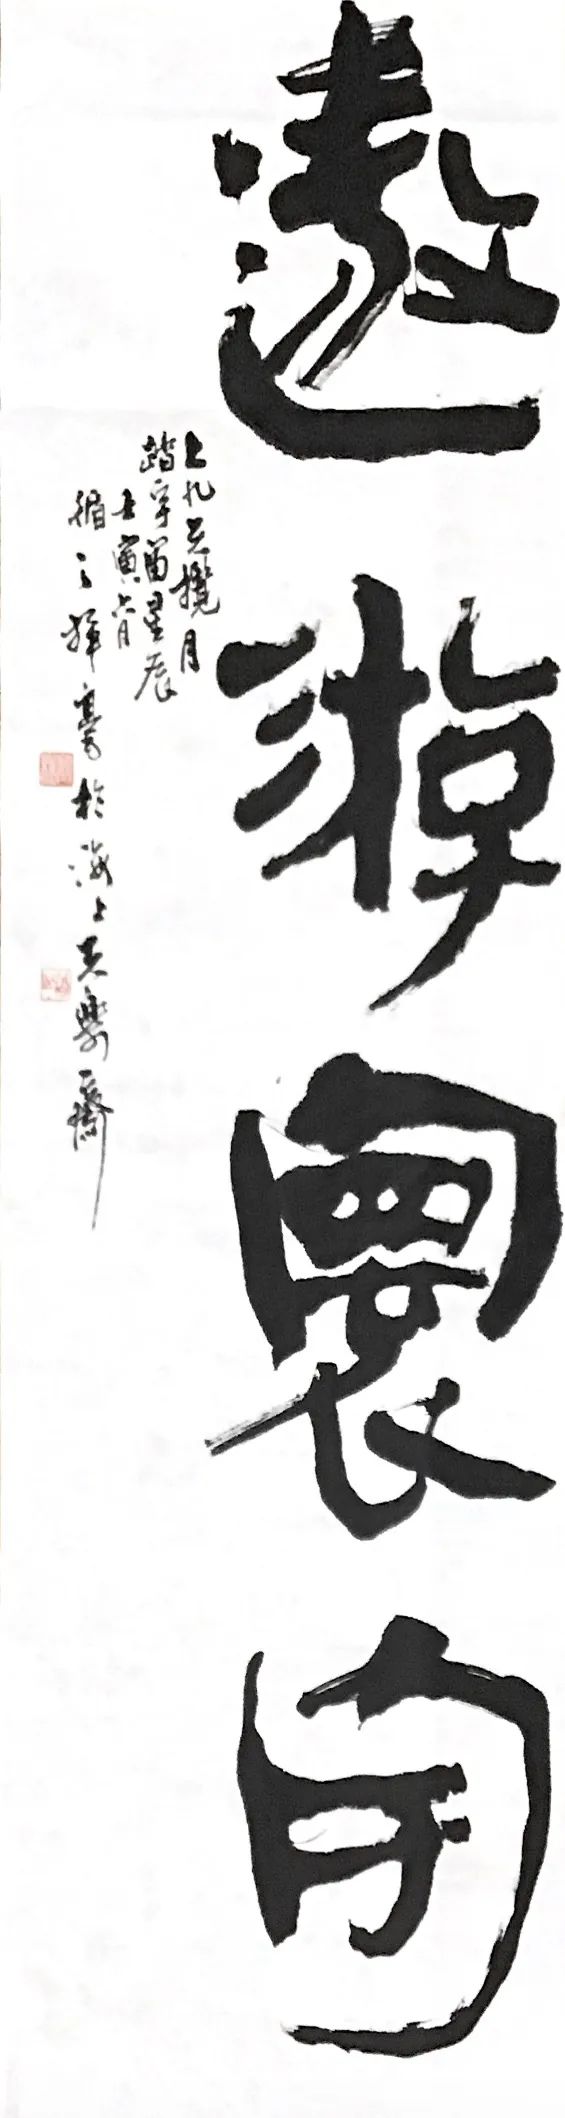 遨游寰宇
上九天攬月
踏宇宙星辰
壬寅六月
循之揮毫於海上
齋